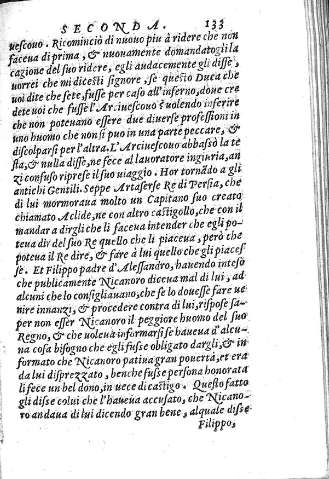 SECONDA. 133
uescouo. Ricominciò di nuouo piu à ridere che non
faceua di prima, & nuouamente domandatogli la
cagione del suo ridere, egli audacemente gli disse,
uorrei che mi dicesti signore, se questo Duca che
uoi dite che sete, fusse per caso all'inferno, doue cre
dete uoi che fusse l'Arciuescouo? uolendo inferire
che non poteuano essere due diuerse professioni in
uno huomo che non si puo in una parte peccare, &
discolparsi per l'altra. L'Arciuescouo abbassò la te
sta, & nulla disse, ne fece al lauoratore ingiuria, an
zi confuso riprese il suo uiaggio. Hor tornādo a gli
antichi Gentili. Seppe Artaserse Re di Persia, che
di lui mormoraua molto un Capitano suo creato
chiamato Aclide, ne con altro castigollo, che con il
mandar a dirgli che li faceua intender che egli po-
teua dir del suo Re quello che li piaceua, però che
poteua il Re dire, & fare à lui quello che gli piaces
se. Et Filippo padre d'Alessandro, hauendo inteso
che publicamente Nicanoro diceua mal di lui, ad
alcuni che lo consigliauano, che se lo douesse fare ue
nire innanzi, & procedere contra di lui, rispose sa-
per non esser Nicanoro il peggiore huomo del suo
Regno, & che uoleua informarsi se haueua d'alcu-
na cosa bisogno che egli fusse obligato dargli, & in
formato che Nicanoro patiua gran pouertà, et era
da lui disprezzato, benche fusse persona honorata
li fece un bel dono, in uece di castigo. Questo fatto
gli disse colui che l'haueua accusato, che Nicano-
ro andaua di lui dicendo gran bene, alquale disse
Filippo,